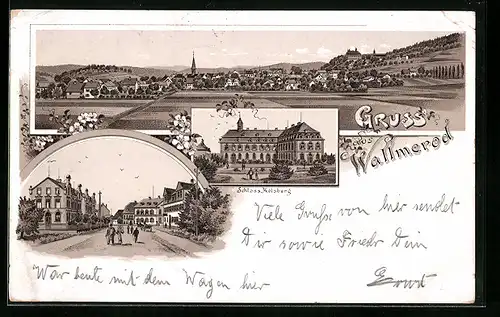 Gruss
aus
Wallmerod
Schloss Molsberg
Viele Grüsse von hier sendet
Dir sowie Friedr Dein
Ernst
War heute mit dem Wagen hier